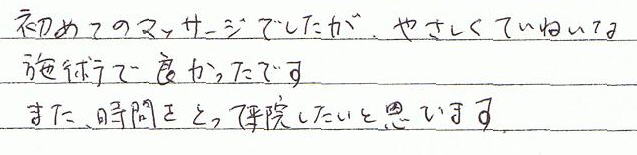 初めてのマッサージでしたが、やさしくていねいな
施術で良かったです
また、時間をとって来院したいと思います